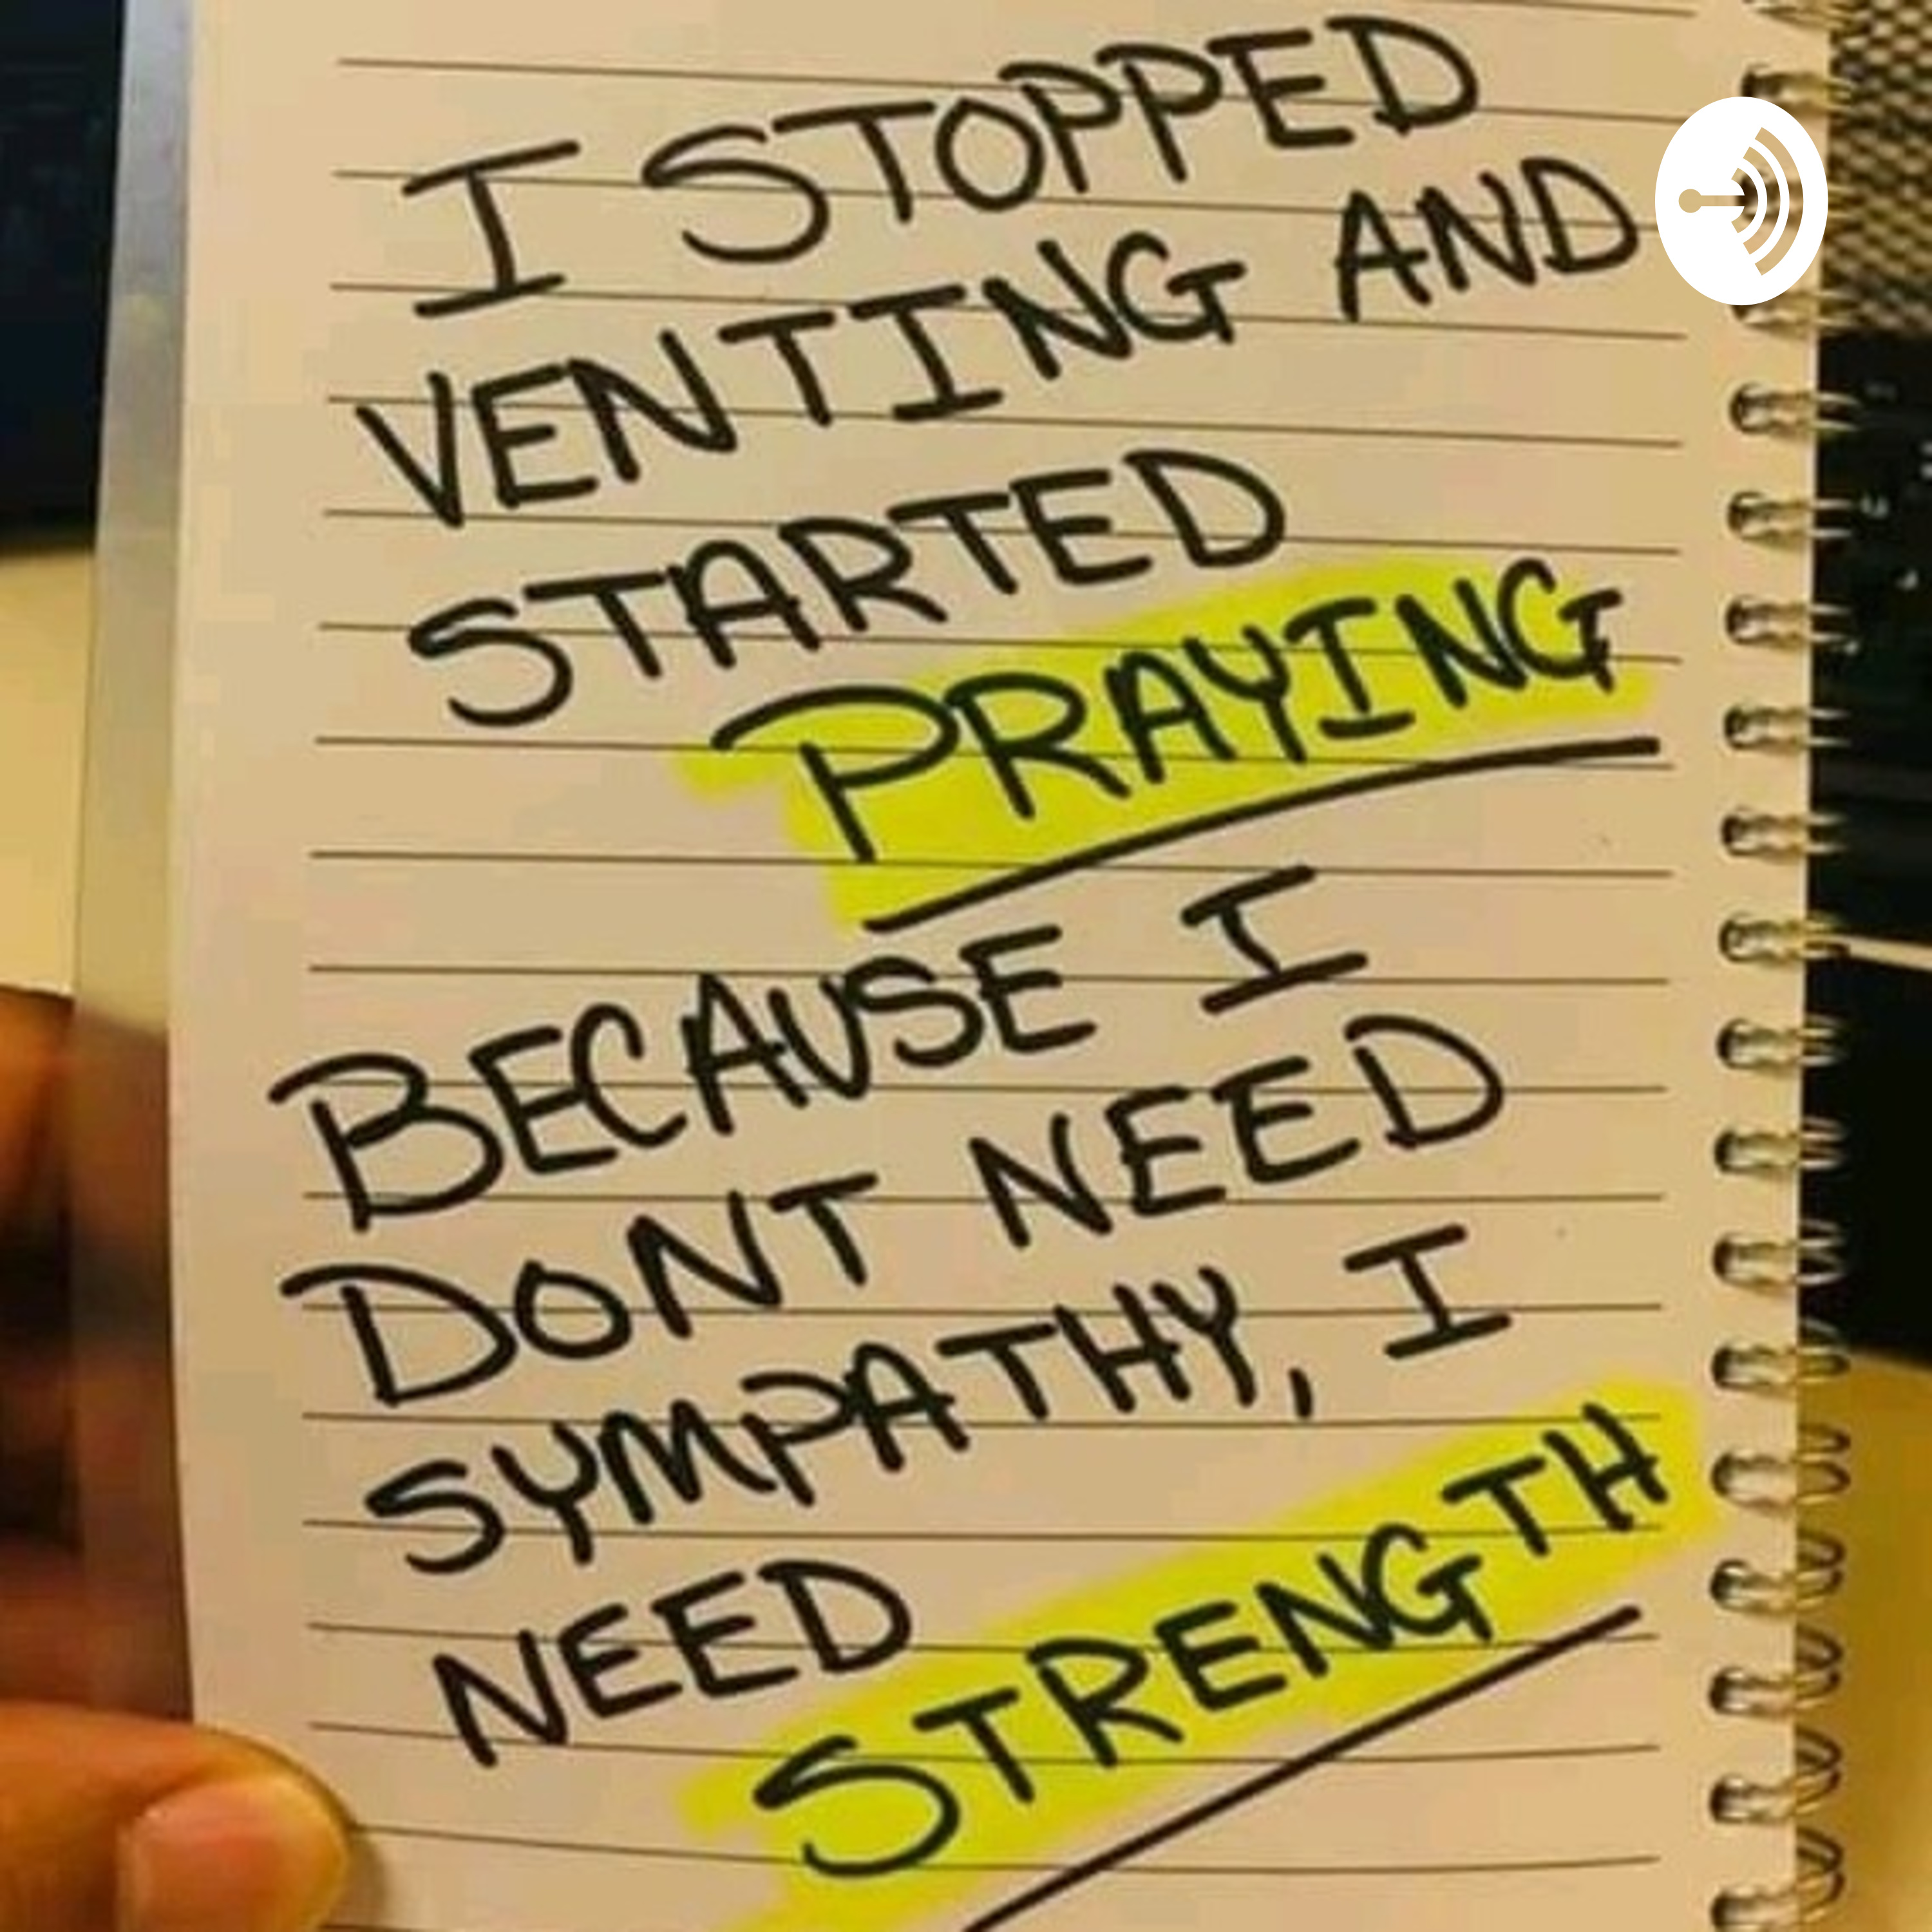 I STOPPED
VENTING AND
STARTED
PRAYING
BECAUSE I
DONT NEED
SYMPATHY, I
NEED
STRENGTH